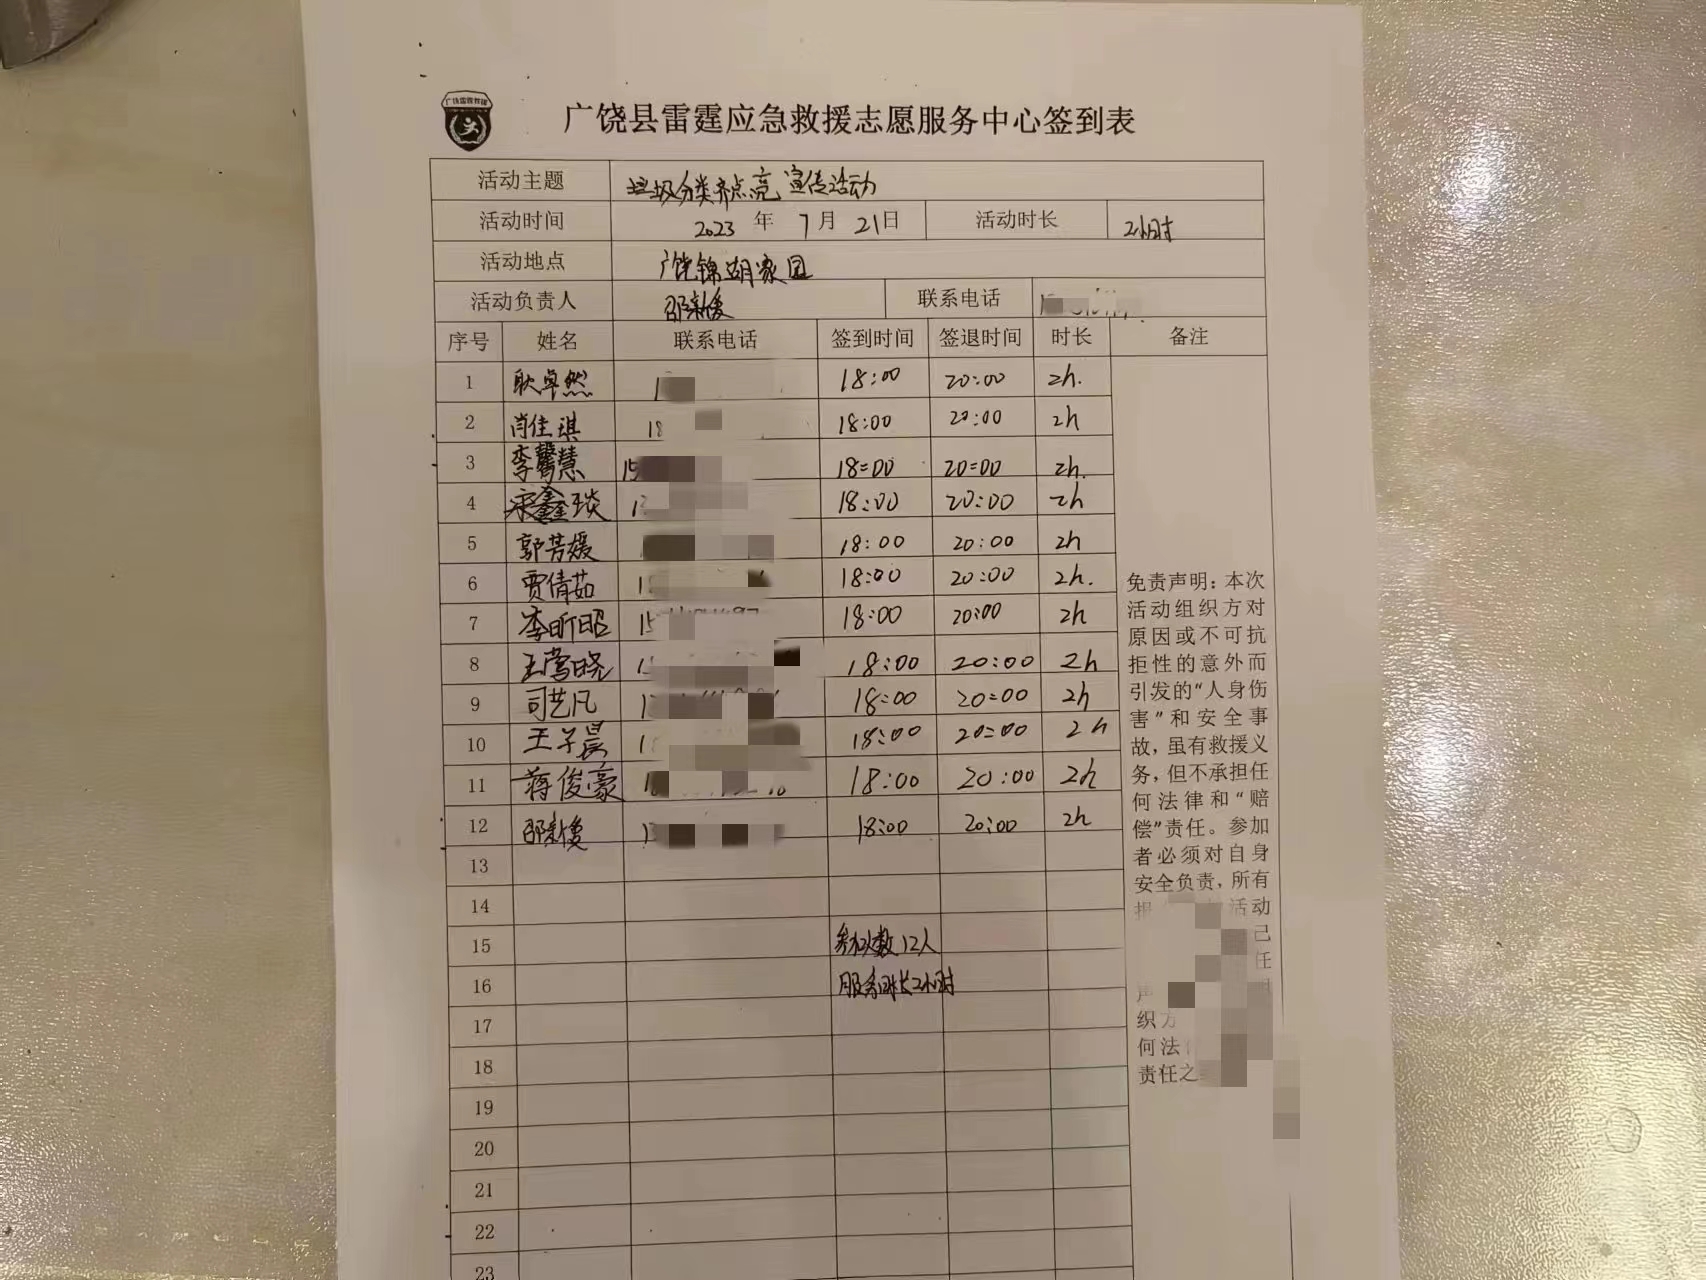 广饶县雷霆应急救援志愿服务中心签到表
活动主题 垃圾分类齐点亮 宣传活动
活动时间 2023 年 7 月 21 日 活动时长 2小时
活动地点 广饶锦湖家园
活动负责人 邵新俊 联系电话
序号 姓名 联系电话 签到时间 签退时间 时长 备注
1 耿卓然 18:00 20:00 2h.
2 肖佳琪 18 18:00 20:00 2h
3 李馨慧 15 18:00 20:00 2h.
4 宋鑫琰 18:00 20:00 2h
5 郭芳媛 18:00 20:00 2h
6 贾倩茹 18:00 20:00 2h.
7 李昕昭 15 18:00 20:00 2h
8 王莺晓 18:00 20:00 2h
9 司艺凡 18:00 20:00 2h
10 王子晨 18:00 20:00 2h
11 蒋俊豪 18:00 20:00 2h
12 邵新俊 18:00 20:00 2h
13
14
15 参加人数12人
16 服务时长2小时
17
18
19
20
21
22
23
免责声明：本次
活动组织方对
原因或不可抗
拒性的意外而
引发的“人身伤
害”和安全事
故，虽有救援义
务，但不承担任
何法律和“赔
偿”责任。参加
者必须对自身
安全负责，所有
活动
己
任
织方
何法
责任之